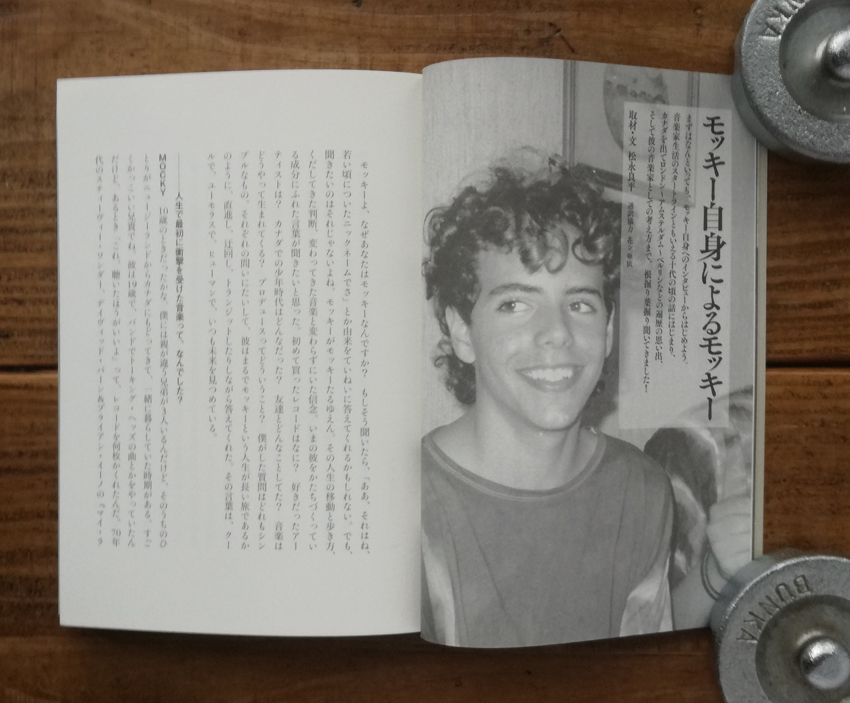 モッキー自身によるモッキー
まずはなんといっても、モッキー自身へのインタビューからはじめよう。
音楽家生活のスタートラインともいえる十代の頃の話にはじまり、
カナダを出てロンドン〜アムステルダム〜ベルリンなどの遍歴の思い出、
そして彼の音楽家としての考え方まで。根掘り葉掘り聞いてきました!
取材・文 松永良平
モッキーよ、なぜあなたはモッキーなんですか? もしそう聞いたら、「ああ、それはね、
若い頃についたニックネームでさ」とか由来をていねいに答えてくれるかもしれない。でも、
聞きたいのはそれじゃないよね。モッキーがモッキーたるゆえん。その人生の移動と歩き方、
くだしてきた判断、変わってきた音楽と変わらずにいた信念。いまの彼をかたちづくってい
る成分にふれた言葉が聞きたいと思った。初めて買ったレコードはなに? 好きだったアー
ティストは? カナダでの少年時代はどんなだった? 友達とどんなことしてた? 音楽は
どうやって生まれてくる? プロデュースってどういうこと? 僕がした質問はどれもシン
プルなもの。それぞれの問いにたいして、彼はまるでモッキーという人生が長い旅であるか
のように、直進し、迂回し、トランジットしたりしながら答えてくれた。その言葉は、クー
ルで、ユーモラスで、ヒューマンで、いつも未来を見つめている。
――人生で最初に衝撃を受けた音楽って、なんでした?
MOCKY 10歳のときだったかな。僕には母親が違う兄弟が3人いるんだけど、そのうちのひ
とりがニュージーランドからカナダにもどってきて、一緒に暮らしていた時期がある。すご
くかっこいい兄貴でね。彼は19歳で、バンドでトーキング・ヘッズの曲とかをやっていたん
だけど、あるとき「これ、聴いたほうがいいよ」って、レコードを何枚かくれたんだ。70年
代のスティーヴィー・ワンダー、デイヴィッド・バーン&ブライアン・イーノの『マイ・ラ
BUNKA
BUNKA